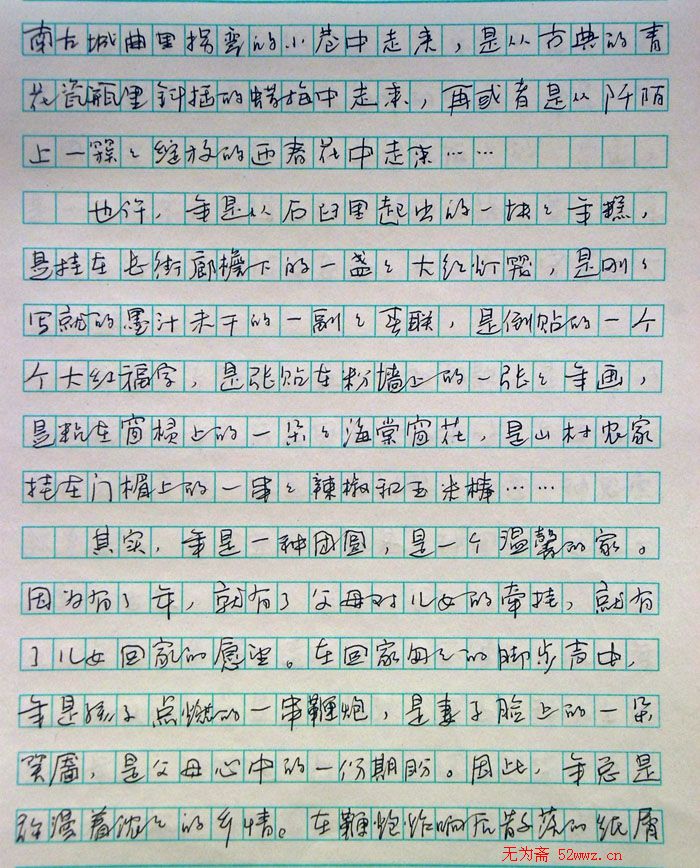 南古城曲里拐弯的小巷中走来，是从古典的青
花瓷瓶里斜插的蜡梅中走来，再或者是从阡陌
上一簇々绽放的迎春花中走来……
也许，年是从石臼里起出的一块々年糕，
是挂在长街廊檐下的一盏々大红灯笼，是刚々
写就的墨汁未干的一副々春联，是倒贴的一个
个大红福字，是张贴在粉墙上的一张々年画，
是粘在窗棂上的一朵々海棠窗花，是山村农家
挂在门楣上的一串々辣椒和玉米棒……
其实，年是一种团圆，是一个温馨的家。
因为有了年，就有了父母对儿女的牵挂，就有
了儿女回家的愿望。在回家匆々的脚步声中，
年是孩子点燃的一串鞭炮，是妻子脸上的一朵
笑靥，是父母心中的一份期盼。因此，年总是
弥漫着浓々的乡情。在鞭炮炸响后散落的纸屑
无为斋 52wwz.cn